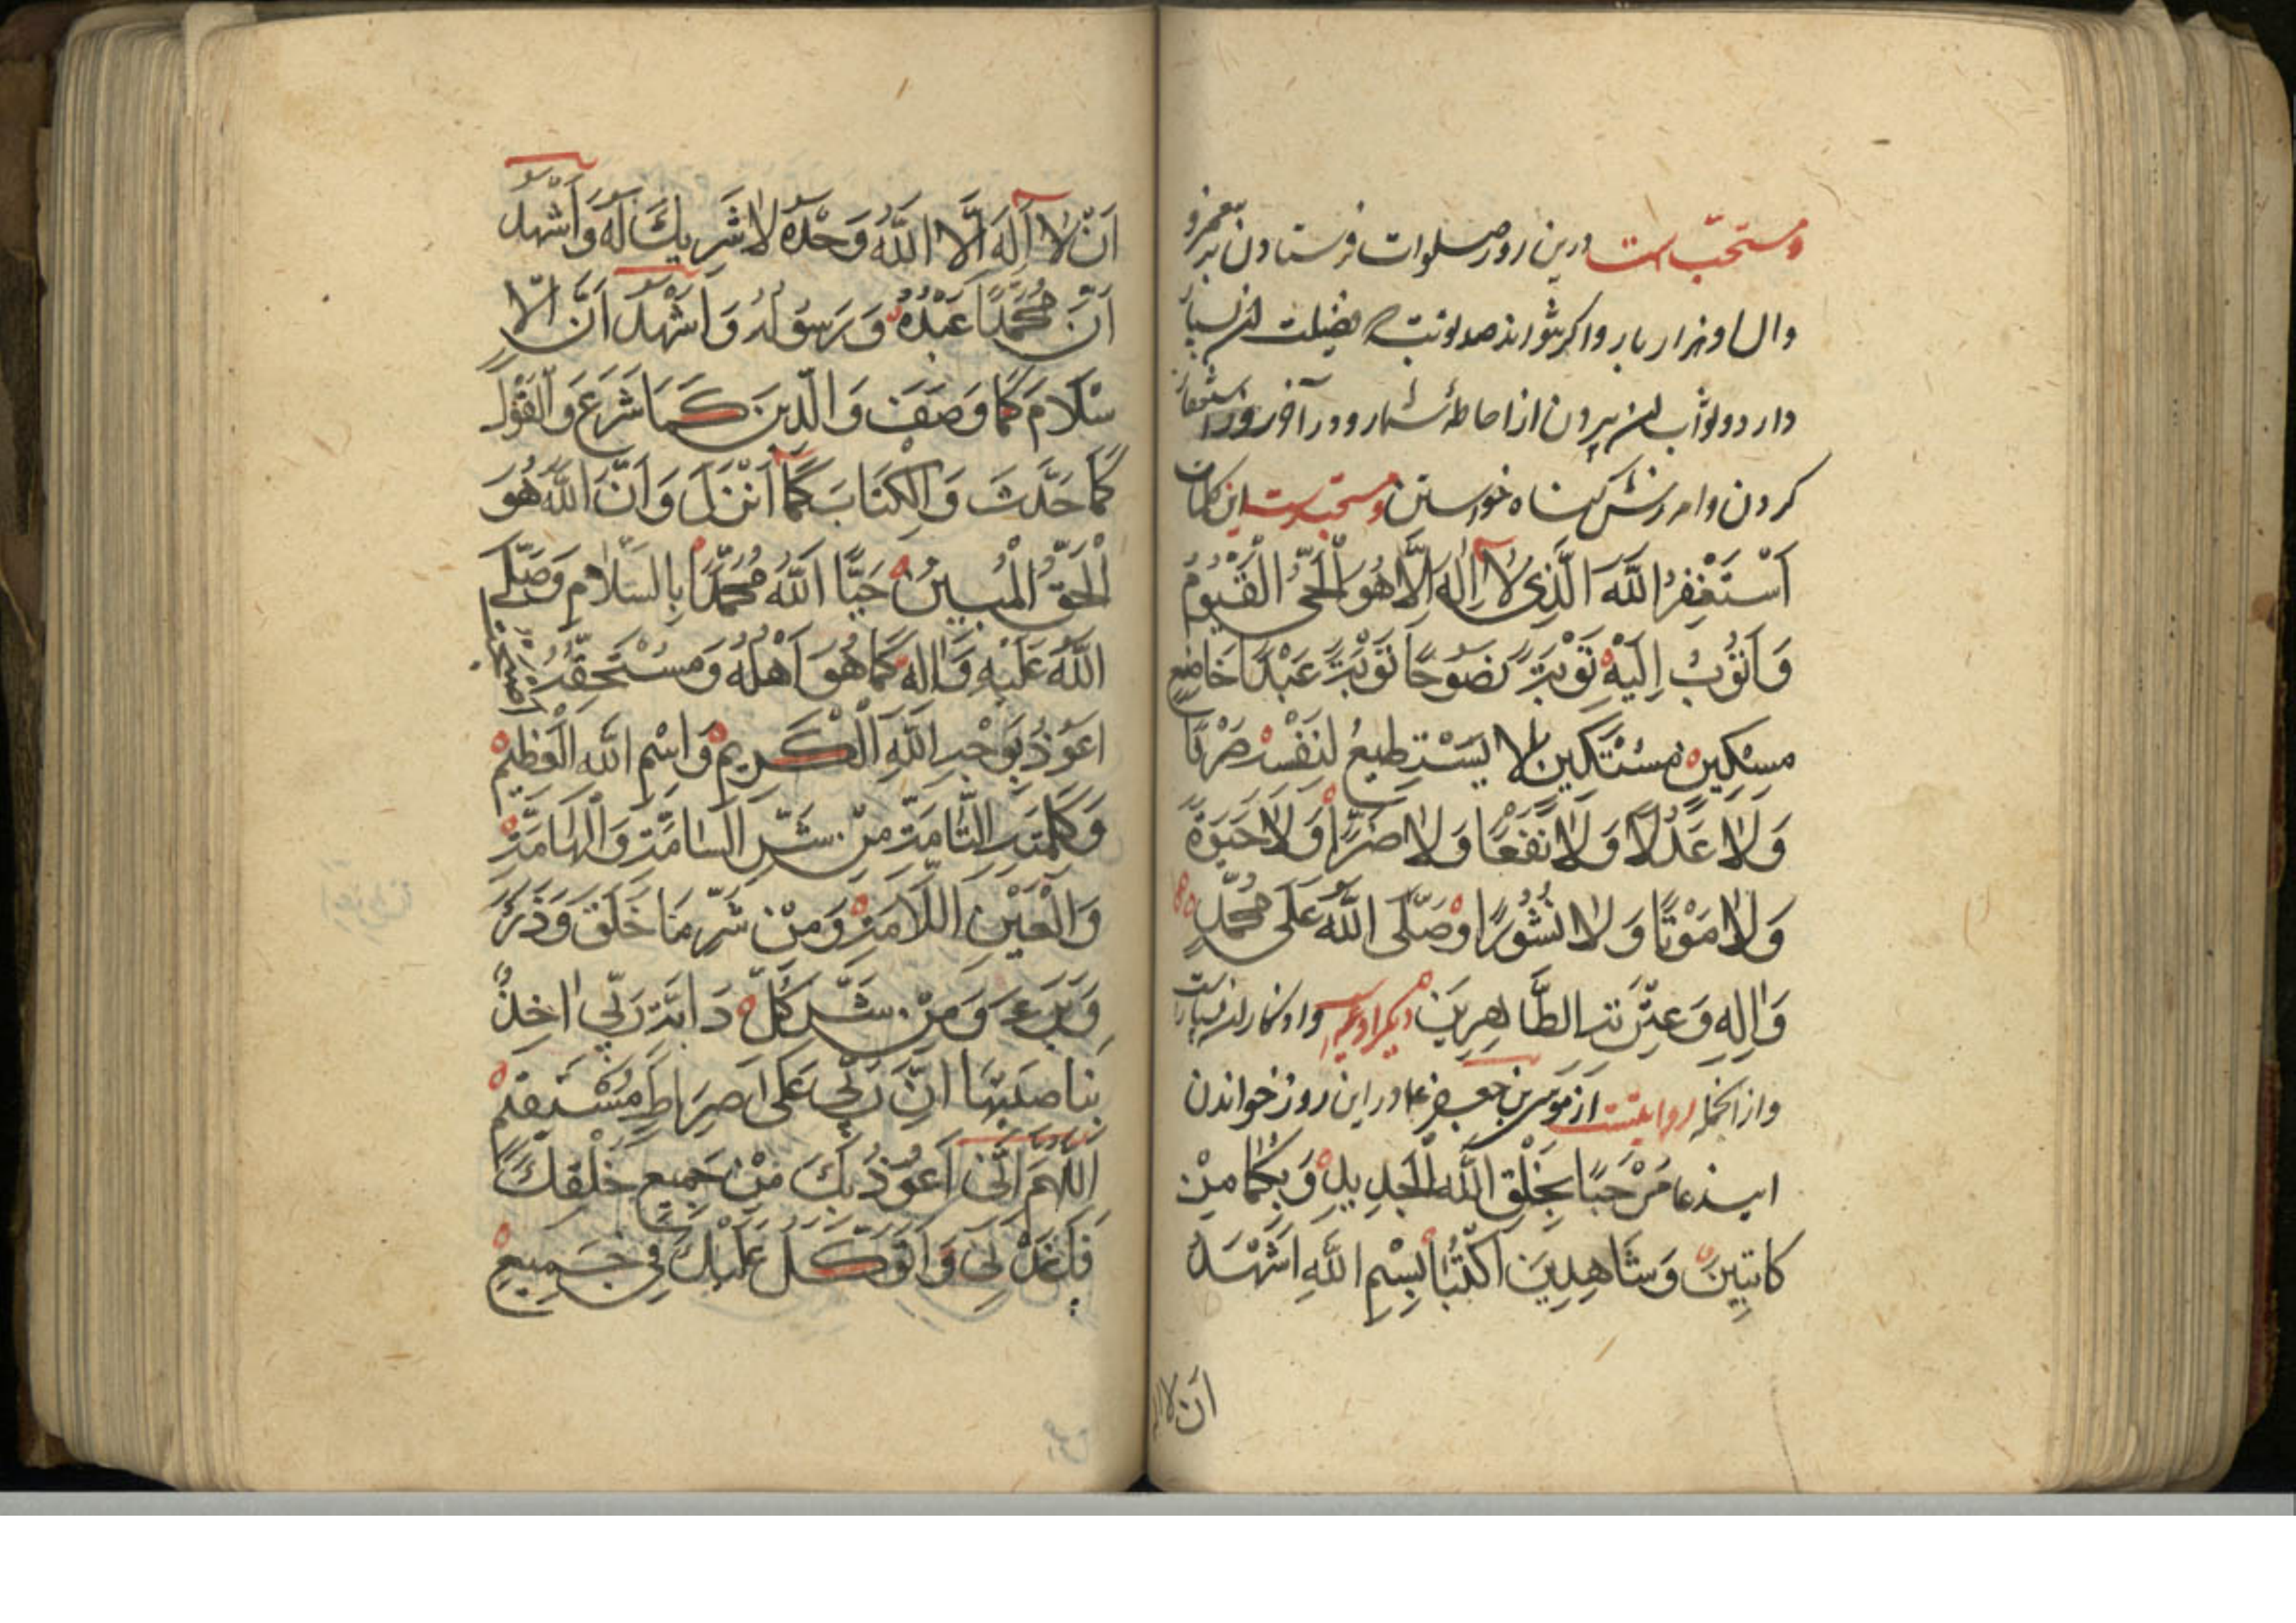 و مستحبّ است درین روز صلوات فرستادن بر پیغمبر و
وال او هزار بار و اکر نتواند صد نوبت که فضیلت این بسیار
دارد و ثواب این بیرون از احاطهٔ شمار و در آخر روز استغفار
کردن و امرزش کناه خواستن و مستحبست این کلمات
اَسْتَغْفِرُ اللّٰهَ الَّذِی لاٰ اِلٰهَ اِلَّا هُوَ الْحَیُّ الْقَیُّومُ
وَ اَتُوبُ اِلَیْهِ تَوْبَةً نَصُوحًا تَوْبَةَ عَبْدًا خَاضِعٍ
مِسْکِینٍ مُسْتَکِینٍ لا یَسْتَطِیعُ لِنَفْسِهِ صَرْفًا
وَلاٰ عَدْلًا وَلاٰ نَفْعًا وَلاٰ ضَرًّا وَلاٰ حَیٰوةً
وَلاٰ مَوْتًا وَلاٰ نُشُورًا وَصَلَّی اللّٰهُ عَلٰی مُحَمَّدٍ
وَاٰلِهِ وَعِتْرَتِهِ الطَّاهِرِینَ دیکر ادعیه و اذکار این بسیارست
و از انجمله روایتست از موسی بن جعفر ع در این روز خواندن
این دعا مَرْحَبًا بِخَلْقِ اللّٰهِ الْجَدِیدِ وَبِکُمَا مِنْ
کاتِبَیْنَ وَشَاهِدِیْنَ اکْتُبَا بِسْمِ اللّٰهِ اَشْهَدُ
اَن لا اله
اَنْ لاٰ اِلٰهَ اِلَّا اللّٰهُ وَحْدَهُ لاٰ شَرِیكَ لَهُ وَاَشْهَدُ
اَنَّ مُحَمَّدًا عَبْدُهُ وَرَسُولُهُ وَاَشْهَدُ اَنَّ الْا
سْلَامَ کَمَا وَصَفَ وَالدِّینَ کَمَا شَرَعَ وَالْقَوْلَ
کَمَا حَدَّثَ وَالْکِتَابَ کَمَا اَنْزَلَ وَاَنَّ اللّٰهَ هُوَ
الْحَقُّ الْمُبِینُ حَیَّا اللّٰهُ مُحَمَّدًا بِالسَّلَامِ وَصَلَّی
اللّٰهُ عَلَیْهِ وَاٰلِهِ کَمَا هُوَ اَهْلُهُ وَمُسْتَحِقُّهُ
اَعُوذُ بِوَجْهِ اللّٰهِ الْکَرِیمِ وَاِسْمِ اللّٰهِ الْعَظِیمِ
وَکَلِمَتِهِ التَّامَّةِ مِنْ شَرِّ السَّامَّةِ وَالْهَامَّةِ
وَالْعَیْنِ اللَّامَّةِ وَمِنْ شَرِّ مَا خَلَقَ وَذَرَءَ
وَبَرَءَ وَمِنْ شَرِّ کُلِّ دَابَّةٍ رَبِّي اٰخِذٌ
بِنَاصِیَتِهَا اِنَّ رَبِّي عَلٰی صِرَاطٍ مُسْتَقِیْمٍ
اَللّٰهُمَّ اِنِّی اَعُوذُ بِكَ مِنْ جَمِیعِ خَلْقِكَ
وَاَتَوَکَّلُ عَلَیْكَ فِی جَمِیعِ